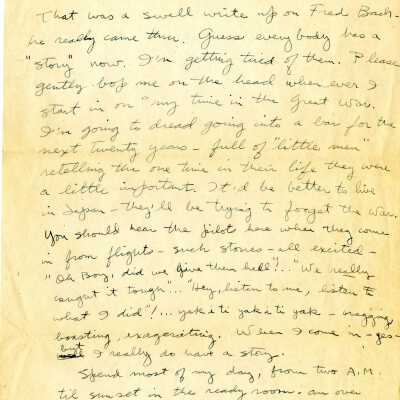 That was a swell write up on Fred Bach-
he really came thru. Guess everybody has a
"story" now. I'm getting tired of them. Please
gently bop me on the head when ever I
start in on "my time in the Great War.
I'm going to dread going into a bar for the
next twenty years - full of "little men"
retelling the one time in their life they were
a little important. It'd be better to live
in Japan - they'll be trying to forget the War.
You should hear the pilots here when they come
in from flights - such stories - all excited -
"Oh Boy, did we give them hell"!.. "We really
caught it tough"... "Hey, listen to me, listen to
what I did"!... yak iti yak iti yak -
boasting, exagerating. When I come in - yes -
but I really do have a story.
Spend most of my day, from two A.M.
til sunset in the ready room. am over